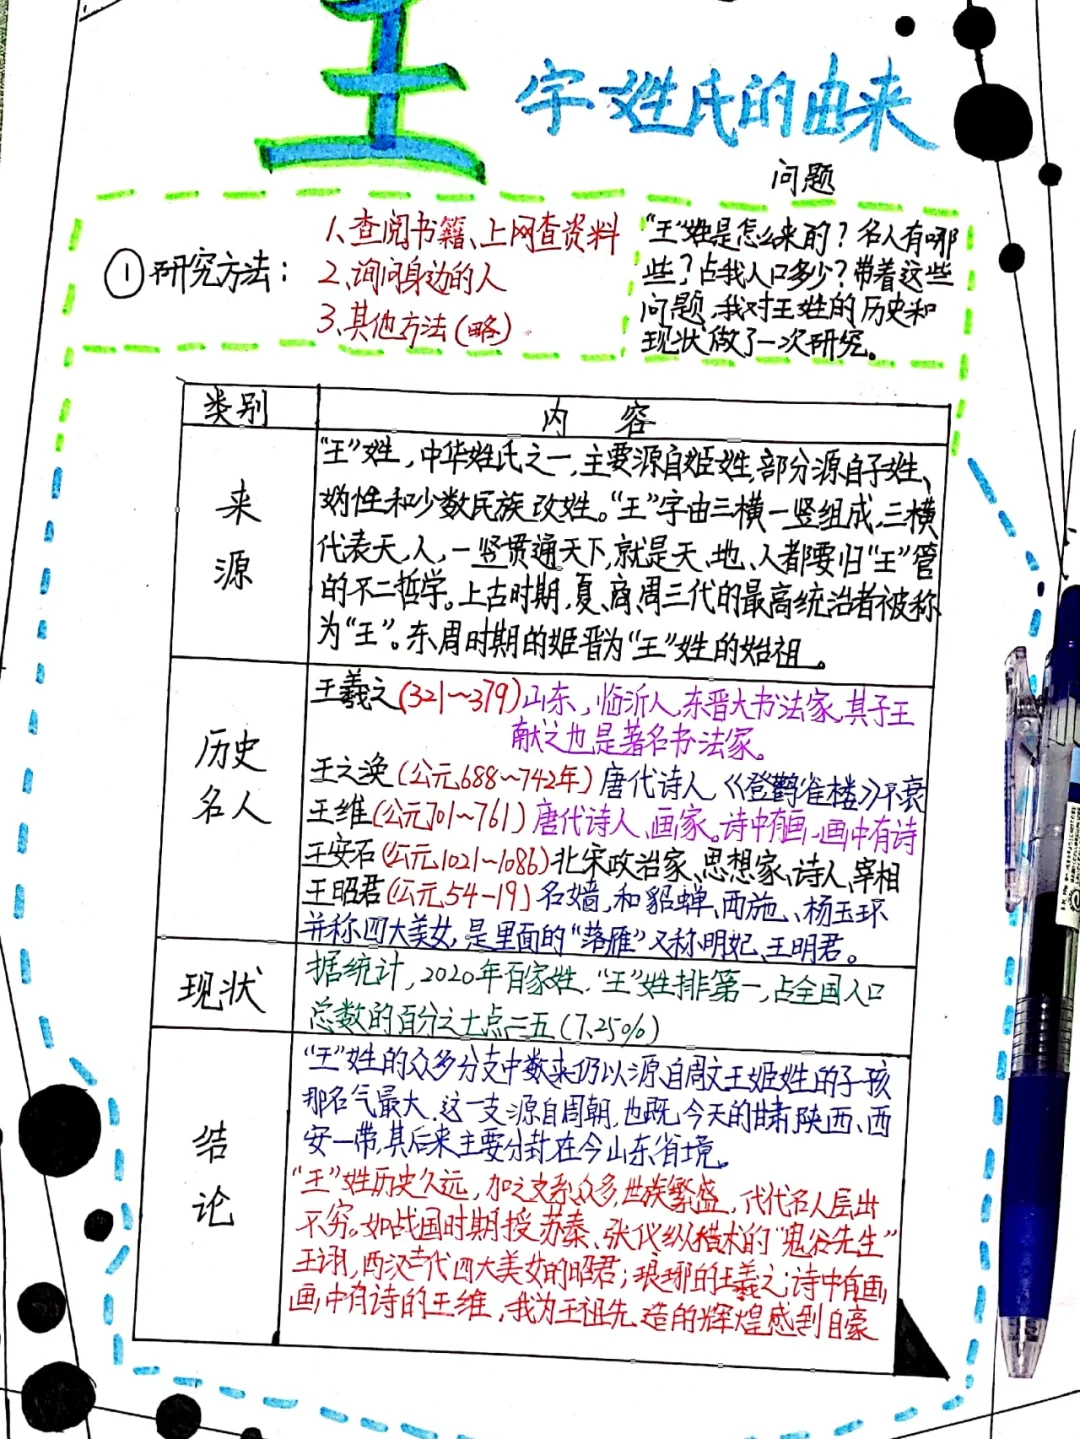 王
字姓氏的由来
问题
①研究方法：
1、查阅书籍、上网查资料
2、询问身边的人
3、其他方法(略)
“王”姓是怎么来的？名人有哪
些？占我人口多少？带着这些
问题，我对王姓的历史和
现状做了一次研究。
类别
内 容
来
源
“王”姓，中华姓氏之一，主要源自姬姓，部分源自子姓、
妫性和少数民族改姓。“王”字由三横一竖组成，三横
代表天，人，一竖贯通天下，就是天、地、人都要归“王”管
的不二哲学。上古时期，夏、商、周三代的最高统治者被称
为“王”。东周时期的姬晋为“王”姓的始祖。
历史
名人
王羲之(321～379)山东，临沂人，东晋大书法家，其子王
献之也是著名书法家。
王之涣(公元688～742年)唐代诗人《登鹳雀楼》不衰
王维(公元701～761)唐代诗人，画家。诗中有画，画中有诗
王安石(公元1021～1086)北宋政治家、思想家、诗人、宰相
王昭君(公元54-19)名嫱，和貂蝉、西施、杨玉环
并称四大美女，是里面的“落雁”又称明妃、王明君。
现状
据统计，2020年百家姓，“王”姓排第一，占全国人口
总数的百分之七点二五(7.25%)
结
论
“王”姓的众多分支中数来仍以源自周文王姬姓的子孩
那名气最大，这一支源自周朝，也既今天的甘肃、陕西、西
安一带，其后来主要分封在今山东省境。
“王”姓历史久远，加之支系众多，世族繁盛，代代名人层出
不穷。如战国时期授苏秦、张仪纵横术的“鬼谷先生”
王诩，两汉古代四大美女的昭君；琅琊的王羲之；诗中有画，
画中有诗的王维，我为王祖先造的辉煌感到自豪